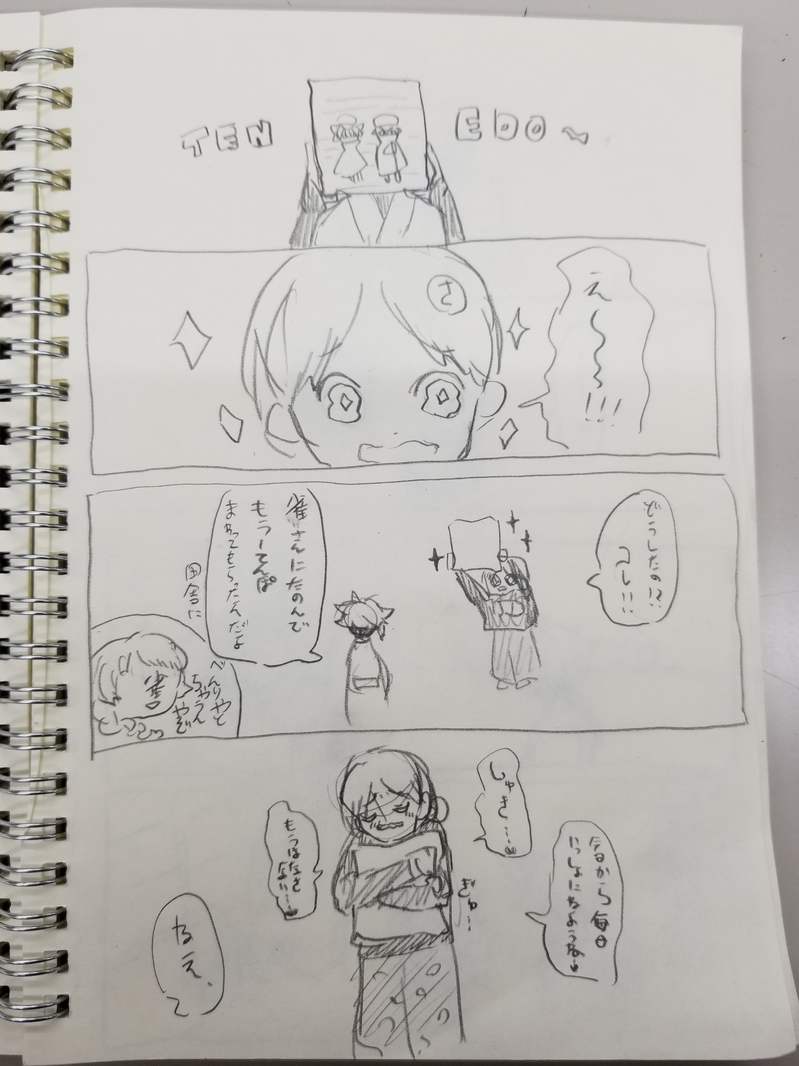 TEN EDO~
え〜〜!!!
さ
どうしたの!?
コレ!!
雀さんにたのんで
もうーてんぽ
まわってもらったんだよ
田舎に
雀
べんりやと
ちゃうん
やぞ
しゅき…
もうはなさ
ない…
ぎゅ…
今日から毎日
いっしょにねようね
ねえ、